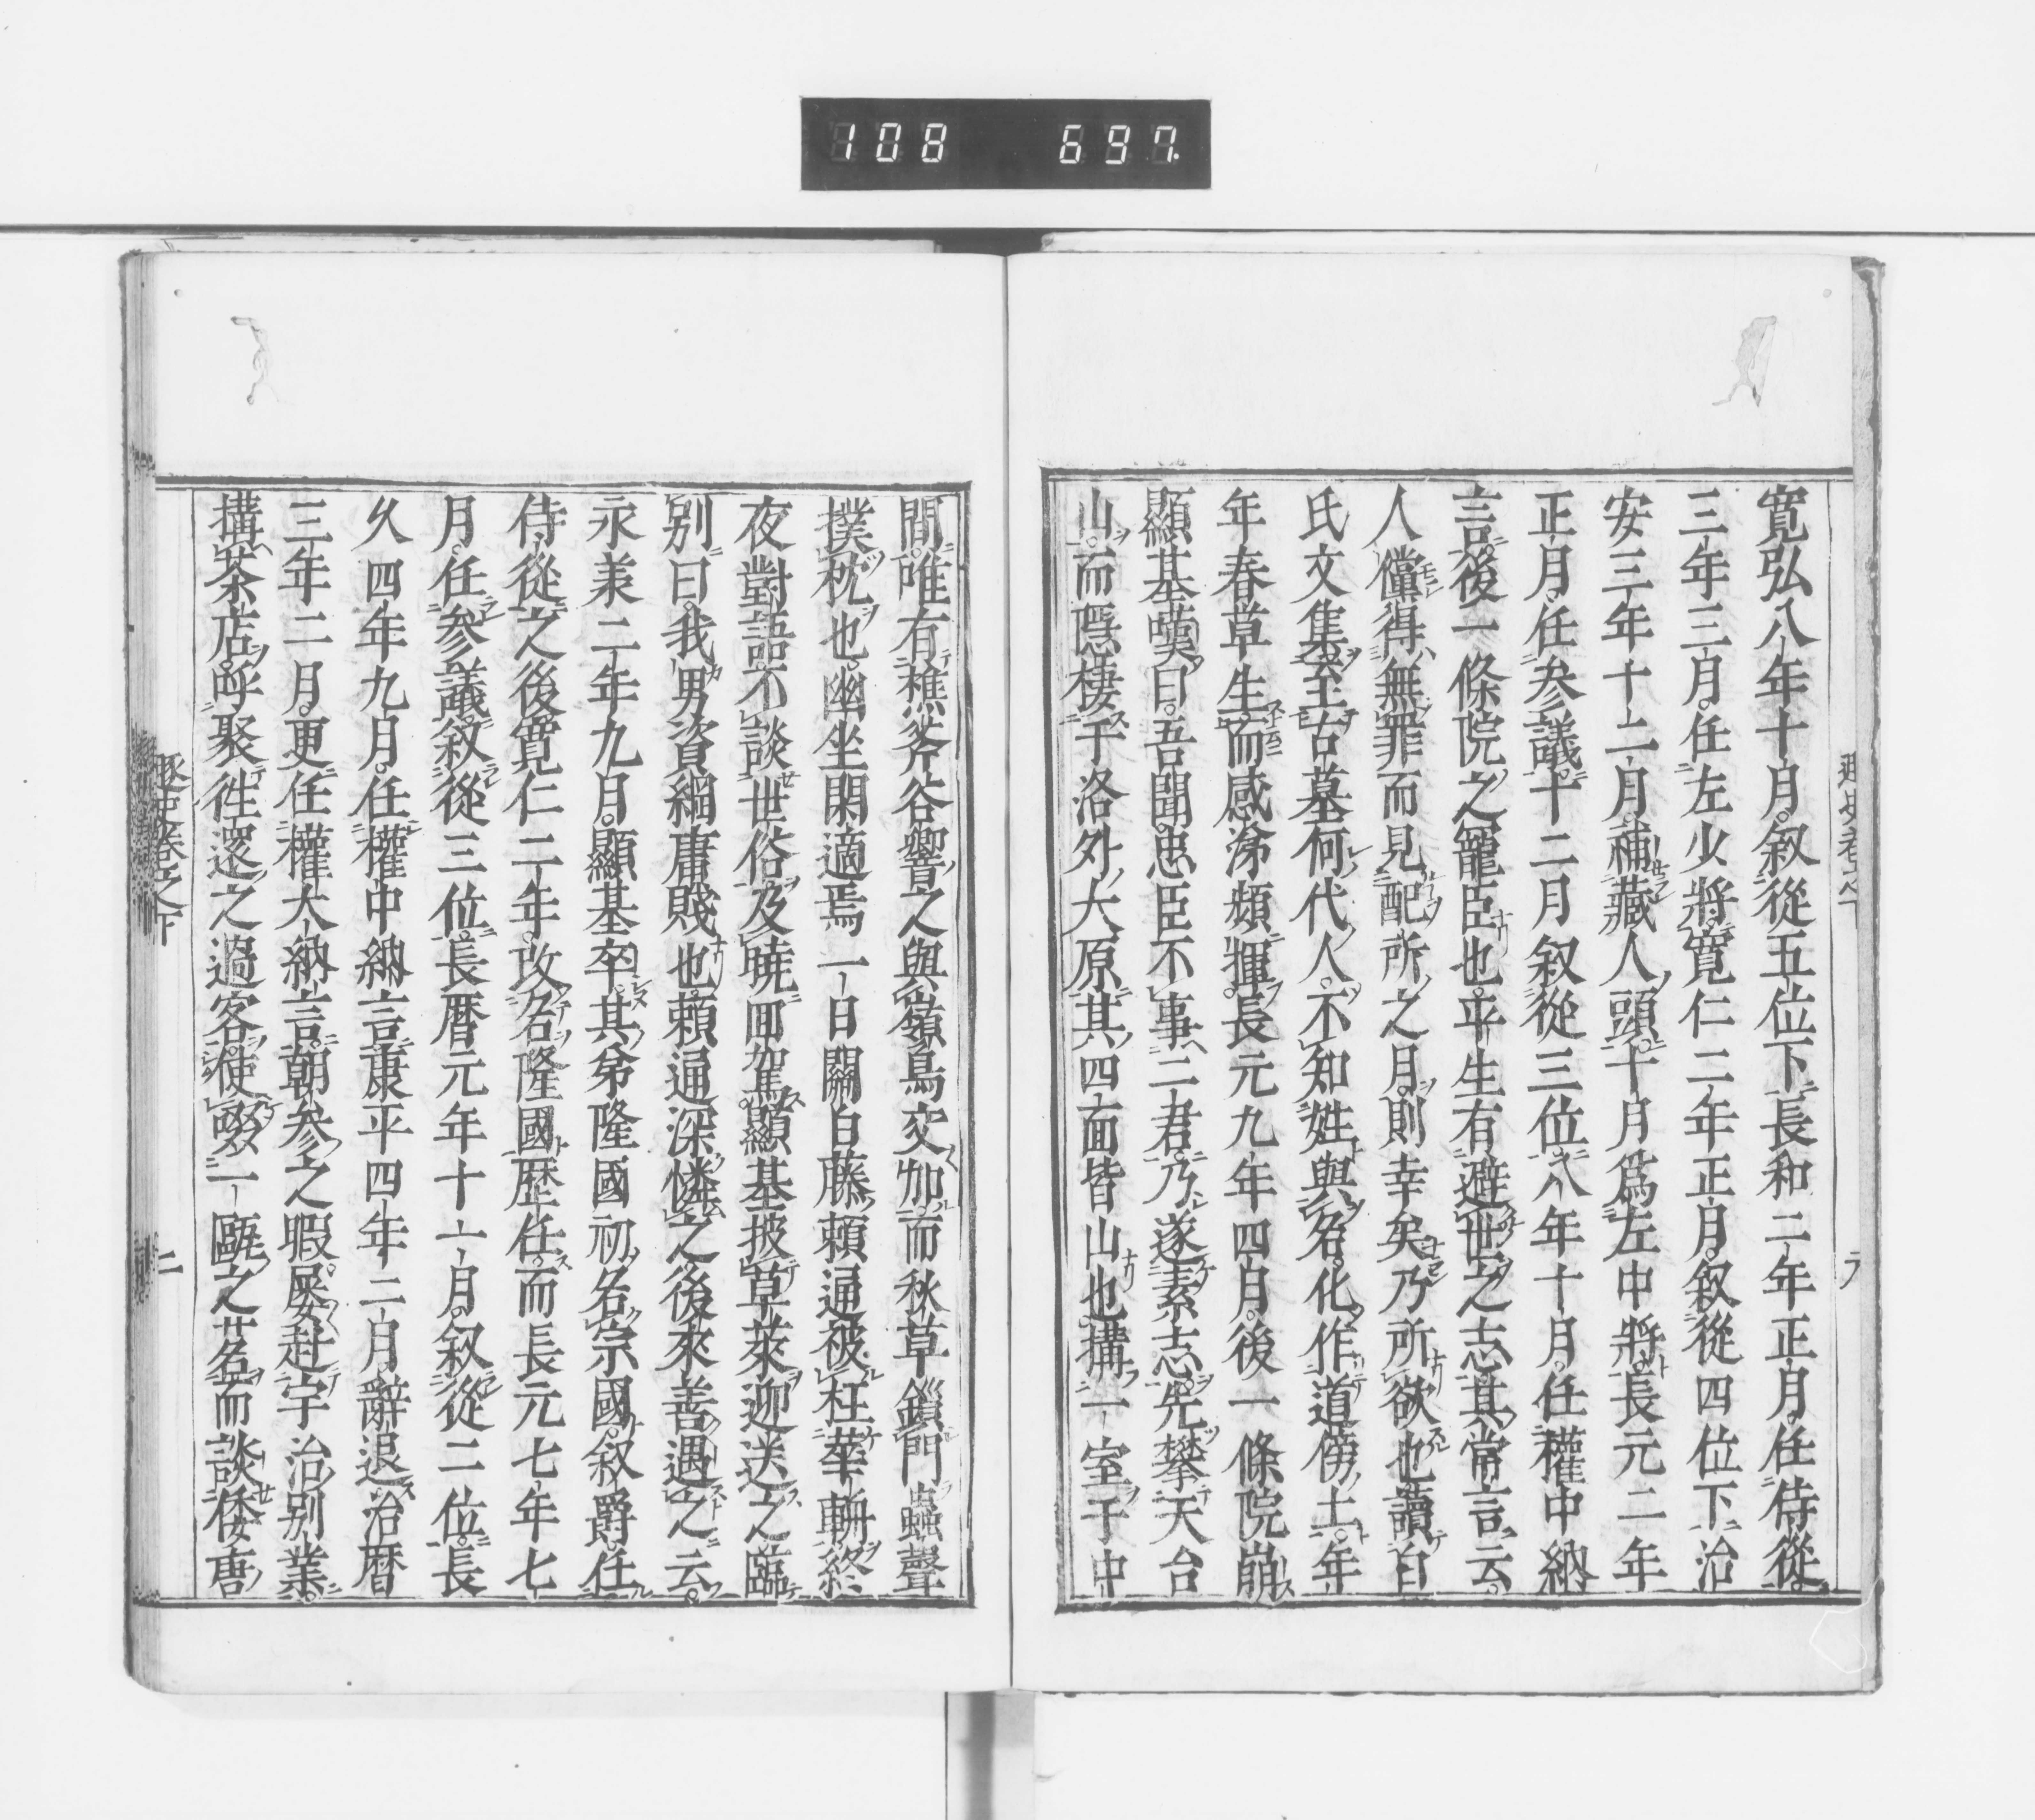 108 697.
寛弘八年十月。叙從五位下長和二年正月。任侍從。
三年三月。任左少將。寛仁二年正月。叙從四位下治
安三年十二月補藏人頭。十月爲左中將。長元二年
正月。任參議。十二月叙從三位八年十月。任權中納
言。後一條院之寵臣也。平生有避世之志其常言云。
人儻得無罪而見配所之月。則幸矣乃所欲也讀白
氏文集至古墓何代人。不知姓與名。化作道傍土。年
年春草生而感涕頻揮。長元九年四月。後一條院崩
顯基嘆曰。吾聞。忠臣不事二君。乃遂素志。先攀天台
山。而隱棲于洛外大原。其四面皆山也。搆一室于中
間。唯有樵斧谷響之與嶺鳥交加。而秋草鎖門蟲聲
撲枕也。幽坐閑適焉一日關白藤頼通被枉華軿。終
夜對語不談世俗及曉囬駕。顯基披草萊迎送之臨
別曰。我男資綱庸賤也。頼通深憐之後來善遇之云。
永兼二年九月。顯基卒。其弟隆國初名宗國。叙爵任
侍從之後寛仁二年。改名隆國歴任。而長元七年七
月。任參議。叙從三位。長暦元年十一月。叙從二位。長
久四年九月。任權中納言康平四年二月辭退。治暦
三年二月。更任權大納言。朝參之暇。屡赴宇治別業。
搆茶店。呼聚徃還之過客。使啜一甌之茗。而談倭唐
遯史卷之下 二